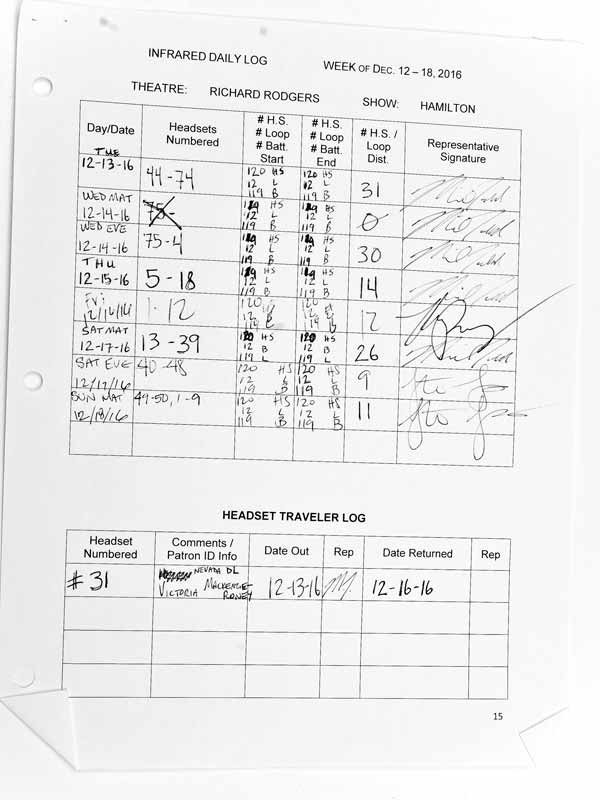 INFRARED DAILY LOG WEEK OF DEC. 12 – 18, 2016
THEATRE: RICHARD RODGERS SHOW: HAMILTON
Day/Date Headsets Numbered # H.S. # Loop # Batt. Start # H.S. # Loop # Batt. End # H.S. / Loop Dist. Representative Signature
TUE 12-13-16 44-74 120 HS 12 L 119 B 120 HS 12 L 119 B 31
WED MAT 12-14-16 75- 12 L 119 B 12 L 119 B 0
WED EVE 12-14-16 75-4 HS 12 L 119 B HS 12 L 119 B 30
THU 12-15-16 5-18 HS 12 L 119 B HS 12 L 119 B 14
Fri 12/16/16 1-12 120 12 119 120 12 119 12
SAT MAT 12-17-16 13-39 120 HS 12 B 119 L 120 HS 12 B 119 L 26
SAT EVE 12/17/16 40-48 120 HS 12 L 119 B 120 HS 12 L 119 B 9
SUN MAT 12/18/16 49-50, 1-9 120 HS 12 L 119 B 120 HS 12 L 119 B 11
HEADSET TRAVELER LOG
Headset Numbered Comments / Patron ID Info Date Out Rep Date Returned Rep
#31 NEVADA DL VICTORIA MACKENZIE RONEY 12-13-16 12-16-16
15